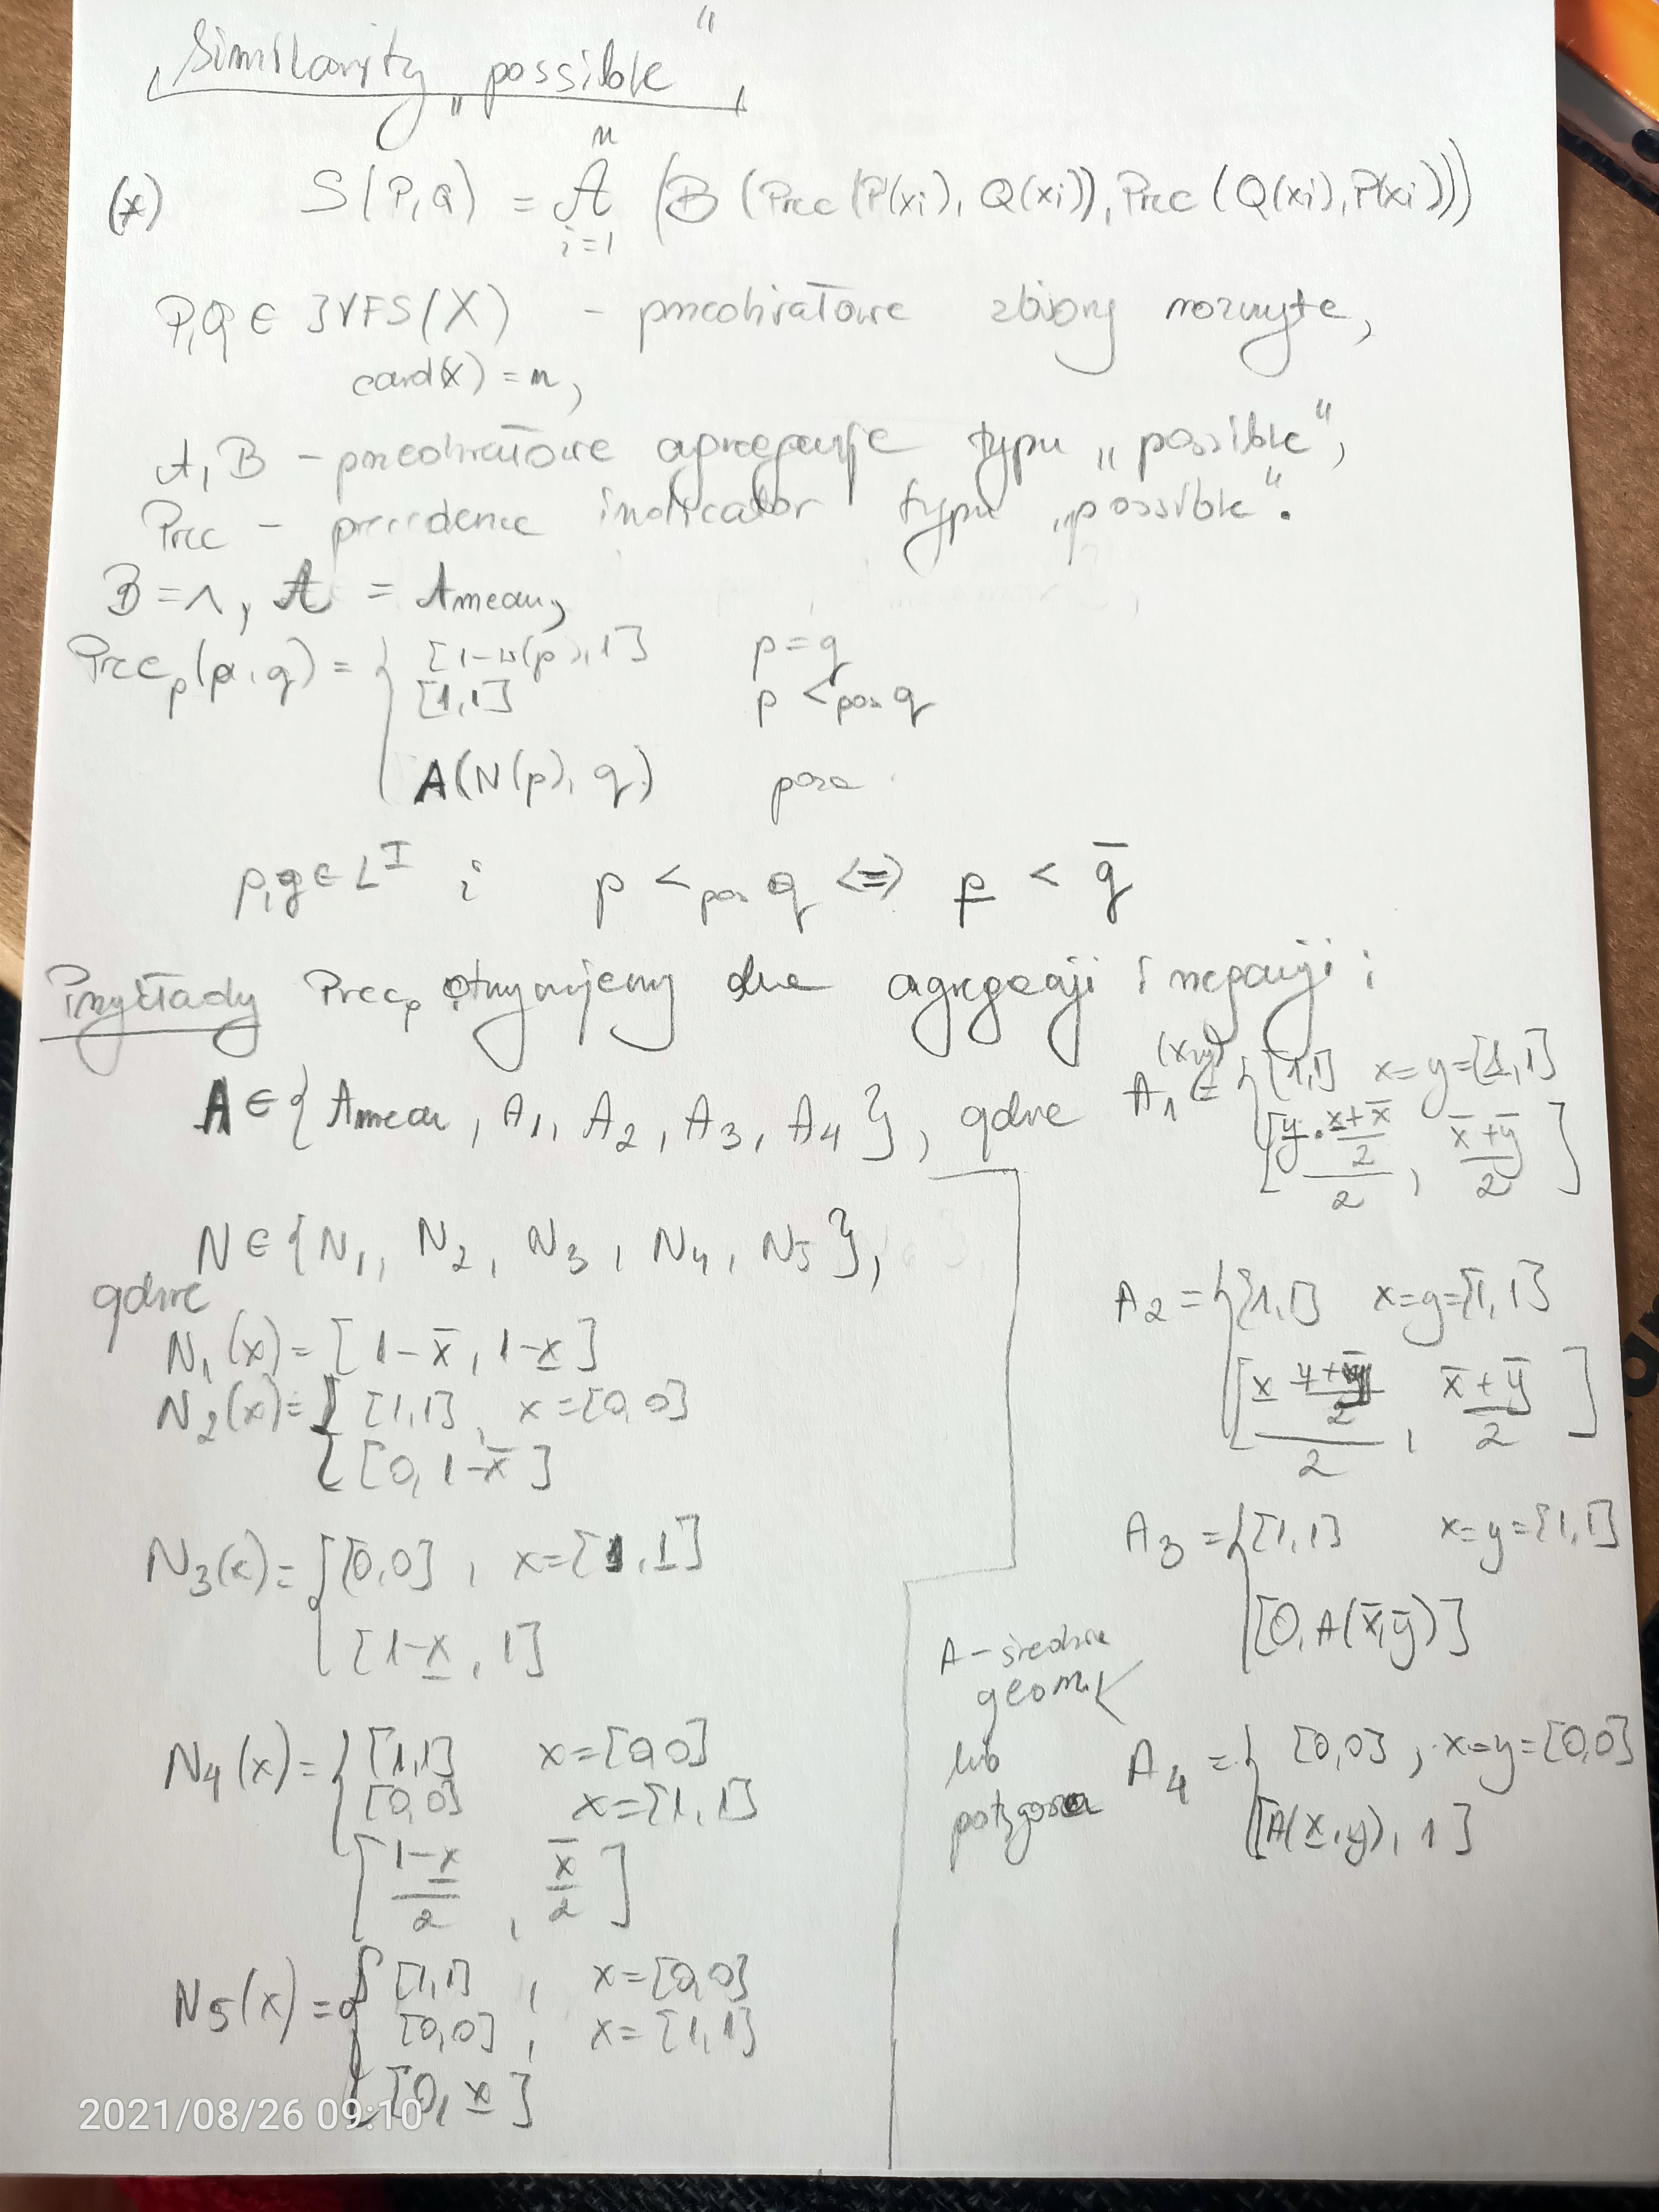 Similarity "possible"
(*) S(P,Q) = A_{i=1}^{n} (B (Prec (P(xi), Q(xi)), Prec (Q(xi), P(xi))))
P,Q ∈ IVFS(X) - przedziałowe zbiory rozmyte,
card(X) = n,
A, B - przedziałowe agregacje typu „possible",
Prec - precedence indicator typu „possible".
B = ∧, A = Amean,
Prec_p(p,q) = { [1-w(p), 1] p = q
[1,1] p <_pos q
A(N(p), q) poza
p,q ∈ L^I i p <_pos q <=> p̲ < q̅
Przykłady Prec_p otrzymujemy dla agregacji i negacji:
A ∈ { Amean, A1, A2, A3, A4 }, gdzie
A1(x,y) = { [1,1] x=y=[1,1]
[ (y̲ · (x̲+x̅)/2)/2 , (x̅+y̅)/2 ]
N ∈ { N1, N2, N3, N4, N5 },
gdzie
N1(x) = [1-x̅, 1-x̲]
N2(x) = { [1,1], x=[0,0]
[0, 1-x̅]
N3(x) = { [0,0], x=[1,1]
[1-x̲, 1]
N4(x) = { [1,1] x=[0,0]
[0,0] x=[1,1]
[ (1-x̲)/2 , x̅/2 ]
N5(x) = { [1,1], x=[0,0]
[0,0], x=[1,1]
[0, x̲]
A2 = { [1,1] x=y=[1,1]
[ (x̲ (y̲+y̅)/2)/2 , (x̅+y̅)/2 ]
A3 = { [1,1] x=y=[1,1]
[0, A(x̅,y̅)]
A - średnia
geom.
lub
potęgowa
A4 = { [0,0], x=y=[0,0]
[A(x̲,y̲), 1]
2021/08/26 09:10